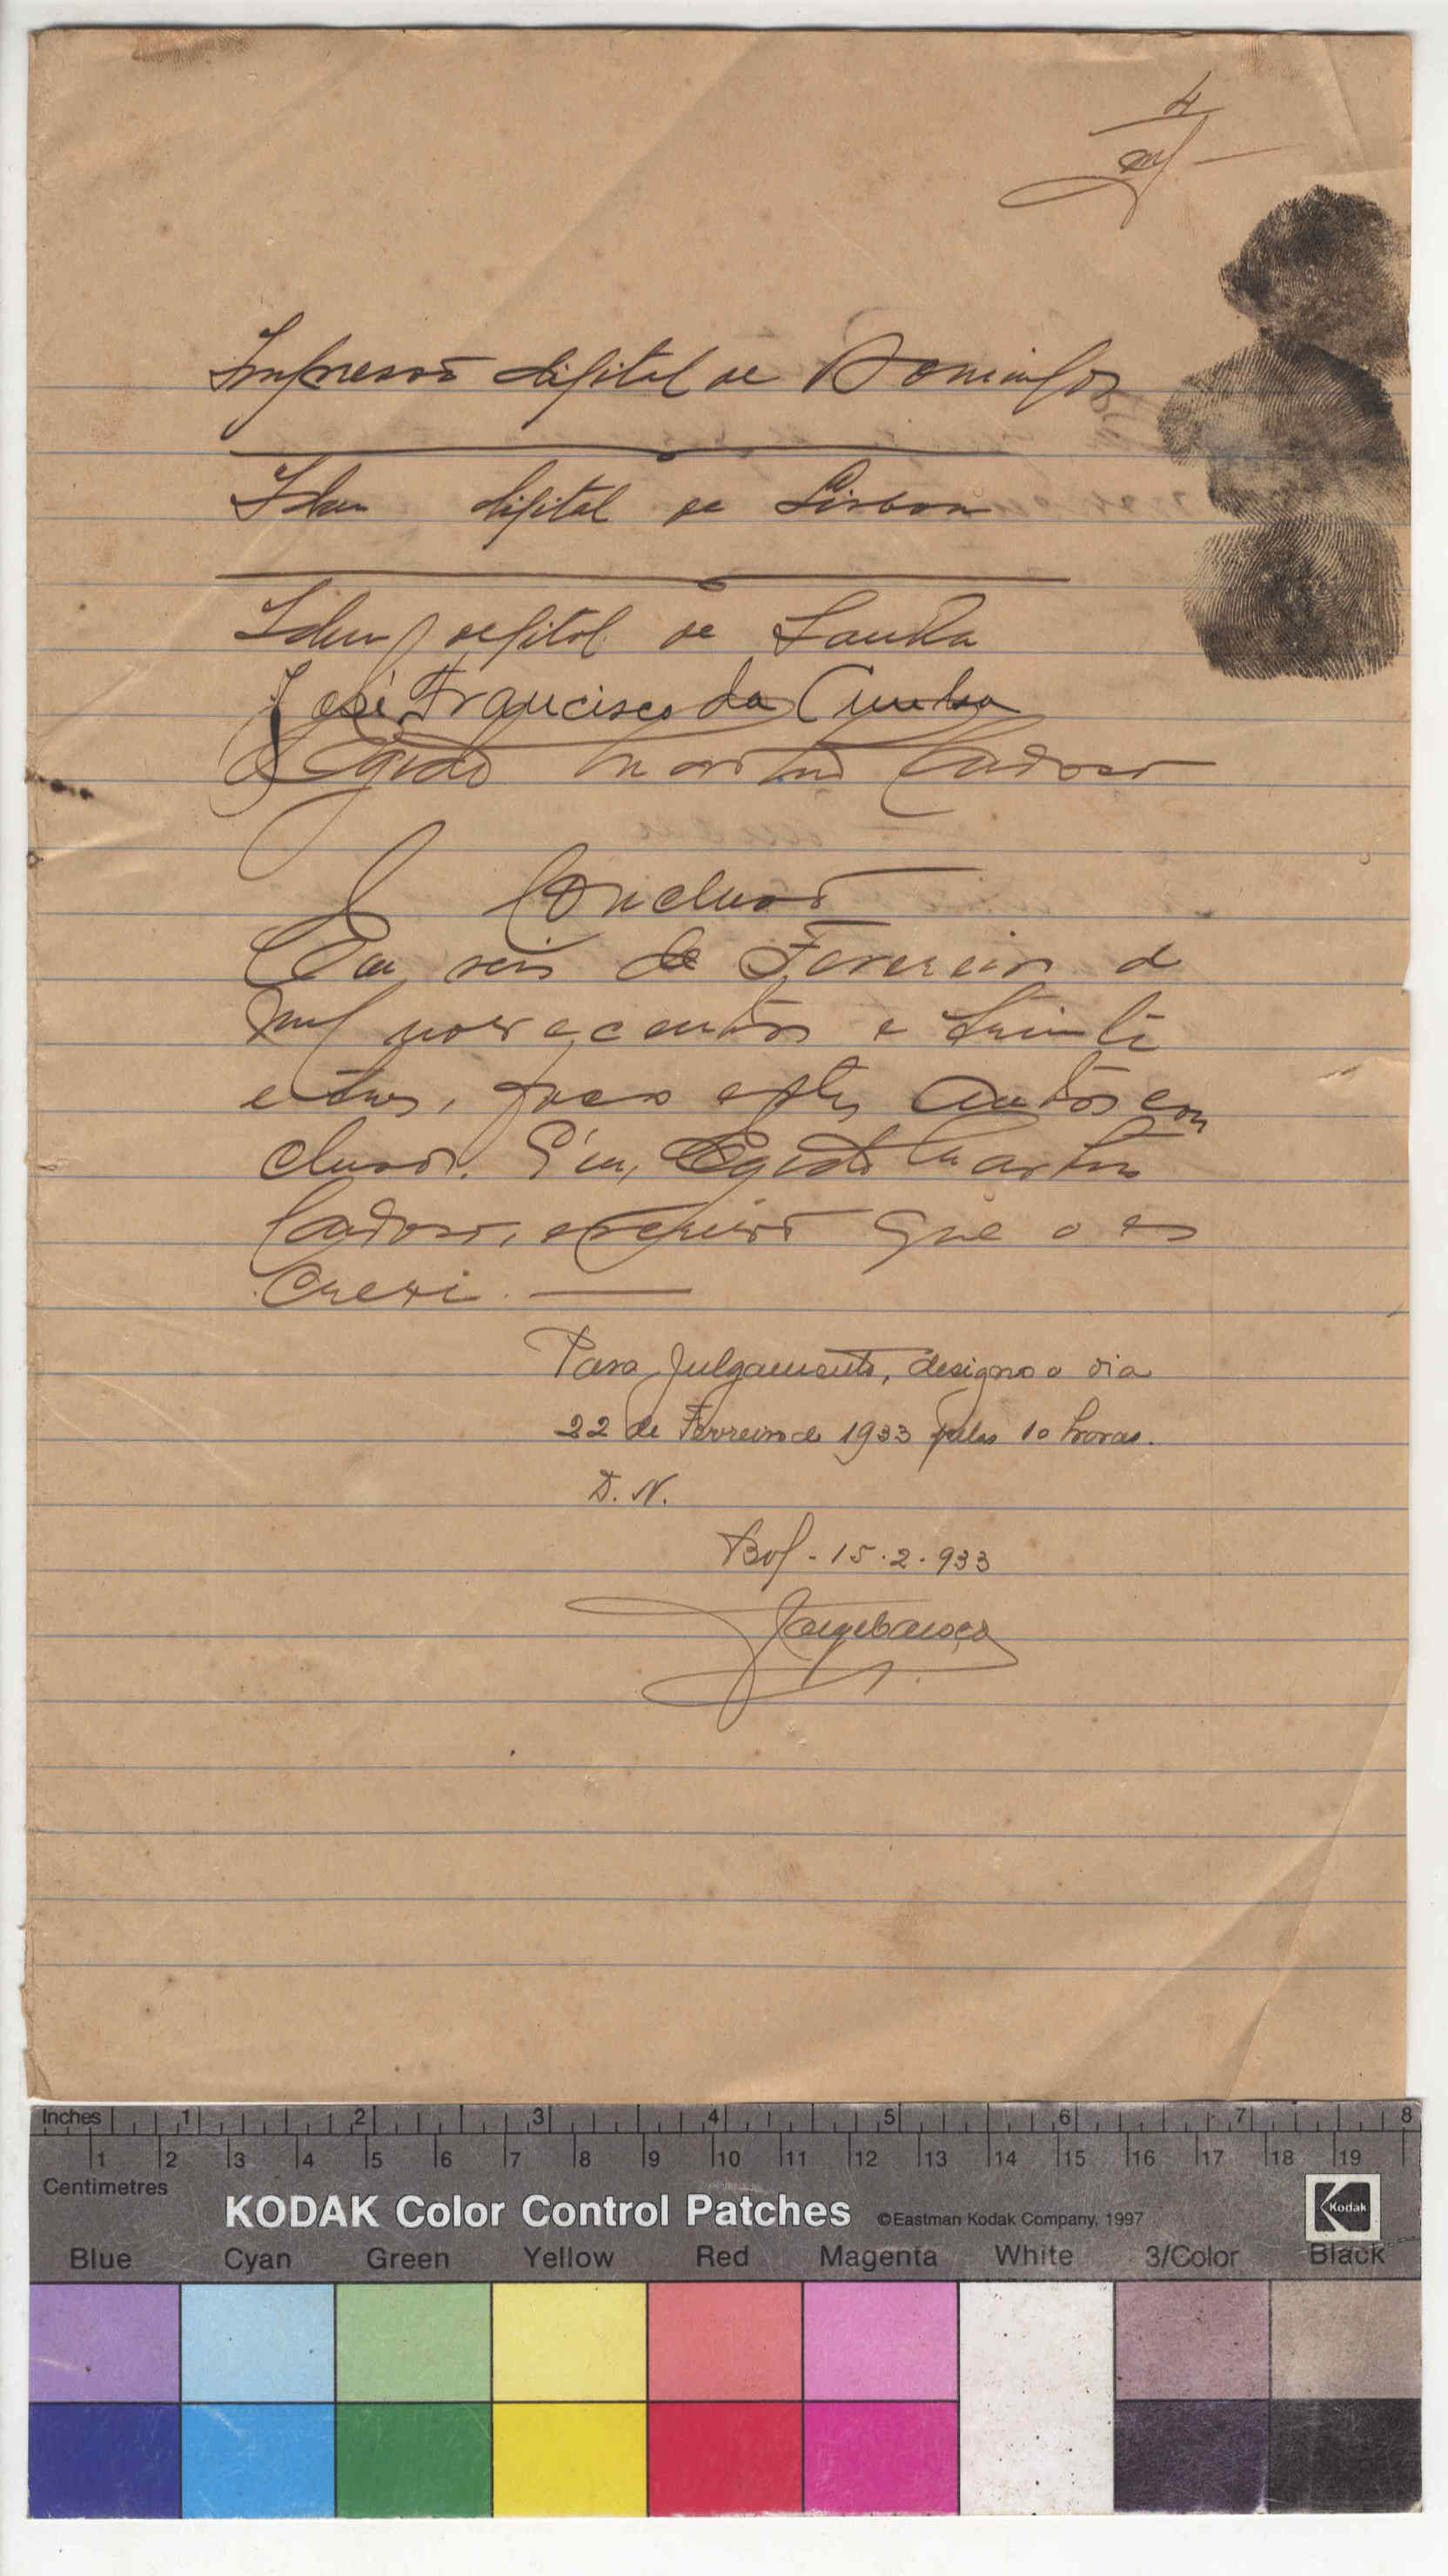 4
Impressão digital de Domingos
Idem digital de Lisboa
Idem digital de
José Francisco da Cunha
Egidio Martins Cardoso
Conclusão
Em seis de Fevereiro de
mil novecentos e trinta
e tres, faço estes autos con
clusos. Eu, Egidio Martins
Cardoso, escrivão que o es
crevi.
Para Julgamento, designo o dia
22 de Fevereiro de 1933 pelas 10 horas.
D. N.
Bol - 15.2.933
Inches 1 2 3 4 5 6 7 8
1 2 3 4 5 6 7 8 9 10 11 12 13 14 15 16 17 18 19
Centimetres
KODAK Color Control Patches ©Eastman Kodak Company, 1997 Kodak
Blue Cyan Green Yellow Red Magenta White 3/Color Black